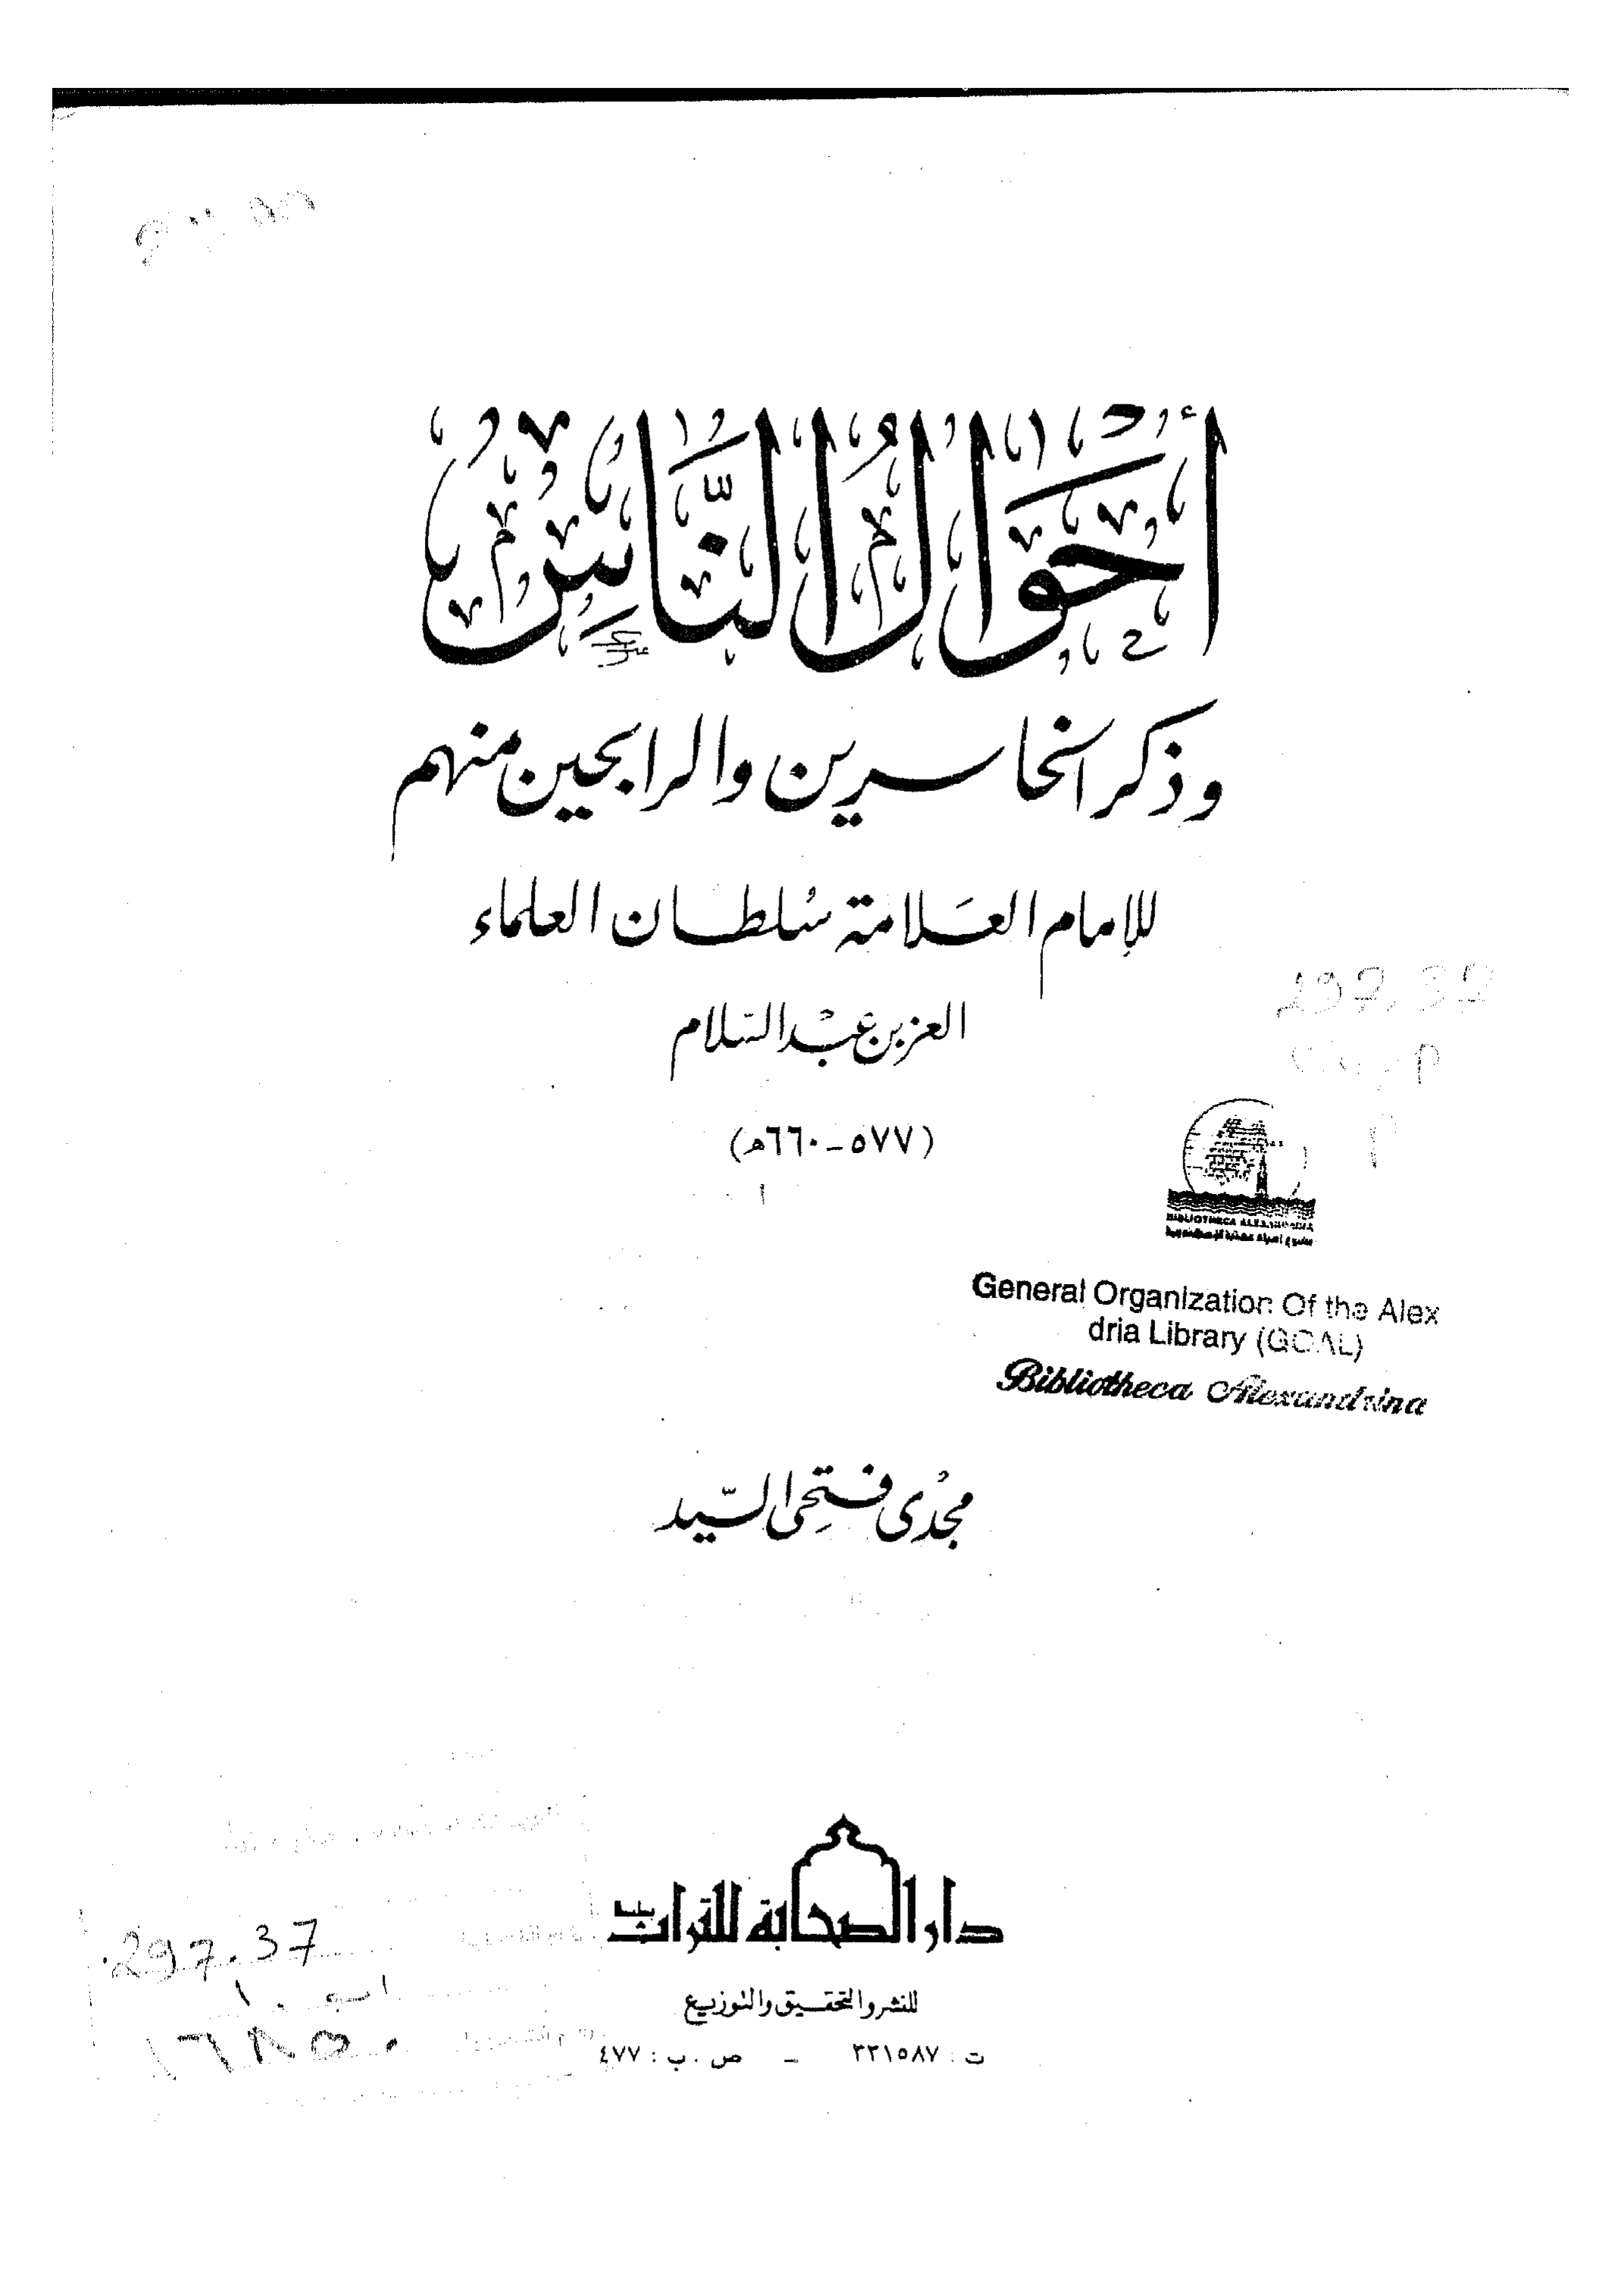 أَحْوَالُ النَّاسِ
وذكر الخاسرين والرابحين منهم
للإمام العَلامة سُلطان العلماء
العز بن عبْد السَّلام
(٥٧٧ - ٦٦٠هـ)
297.37
BIBLIOTHECA ALEXANDRINA
General Organization Of the Alex
dria Library (GOAL)
Bibliotheca Alexandrina
مجْدى فتحِى السَّيد
دار الصحابة للتراث
للنشر والتحقيق والتوزيع
ت : ٣٣١٥٨٧ - ص . ب : ٤٧٧
297.37